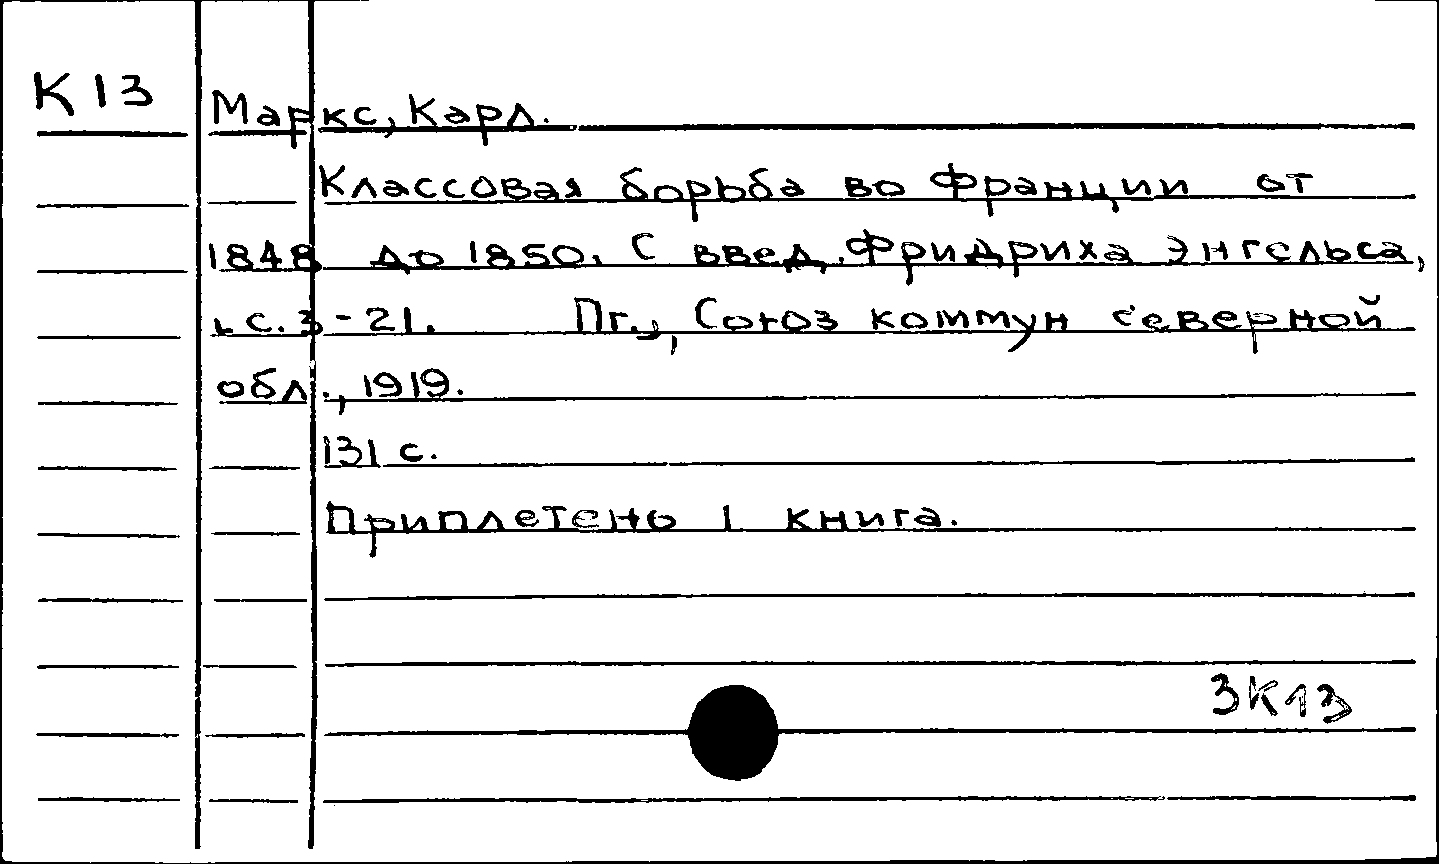 К 13
Маркс, Карл.
Классовая борьба во Франции от
1848 до 1850. С введ. Фридриха Энгельса,
с. 3-21. Пг., Союз коммун северной
обл., 1919.
131 с.
Приплетено 1 книга.
3К13